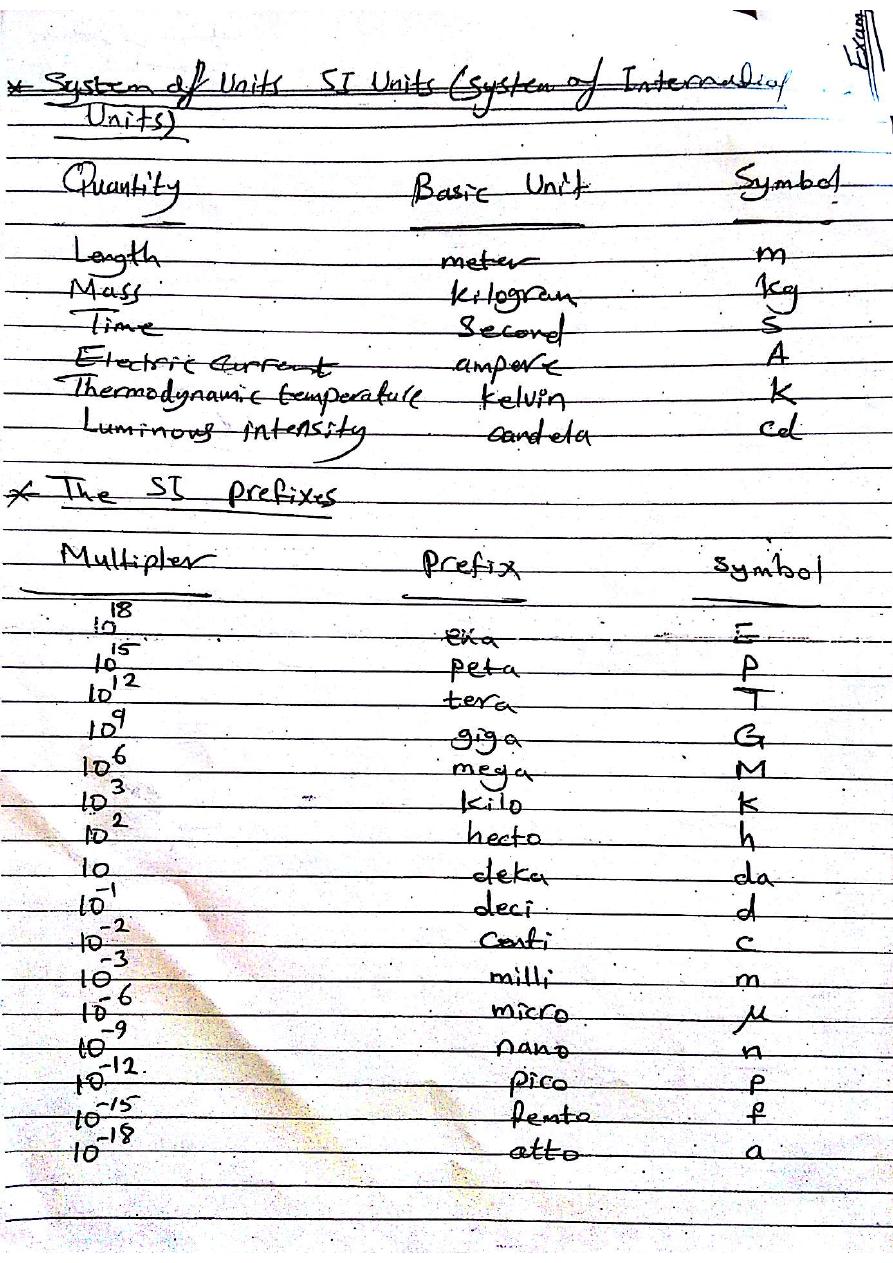 Exam
* System of Units SI Units (System of International
Units)
Quantity Basic Unit Symbol
Length meter m
Mass kilogram kg
Time Second S
Electric Current ampere A
Thermodynamic temperature kelvin K
Luminous intensity candela cd
* The SI prefixes
Multipler Prefix Symbol
10¹⁸ exa E
10¹⁵ peta P
10¹² tera T
10⁹ giga G
10⁶ mega M
10³ kilo k
10² hecto h
10 deka da
10⁻¹ deci d
10⁻² Centi c
10⁻³ milli m
10⁻⁶ micro μ
10⁻⁹ nano n
10⁻¹² pico p
10⁻¹⁵ femto f
10⁻¹⁸ atto a